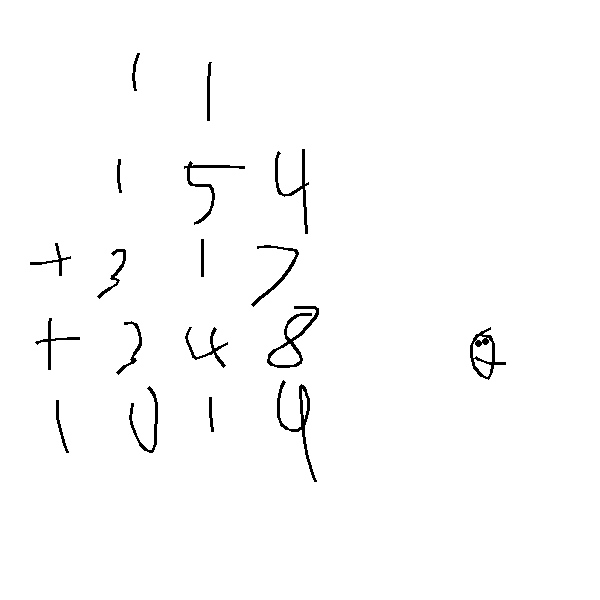 1 1
1 5 4
+ 3 1 7
+ 3 4 8
1 0 1 9